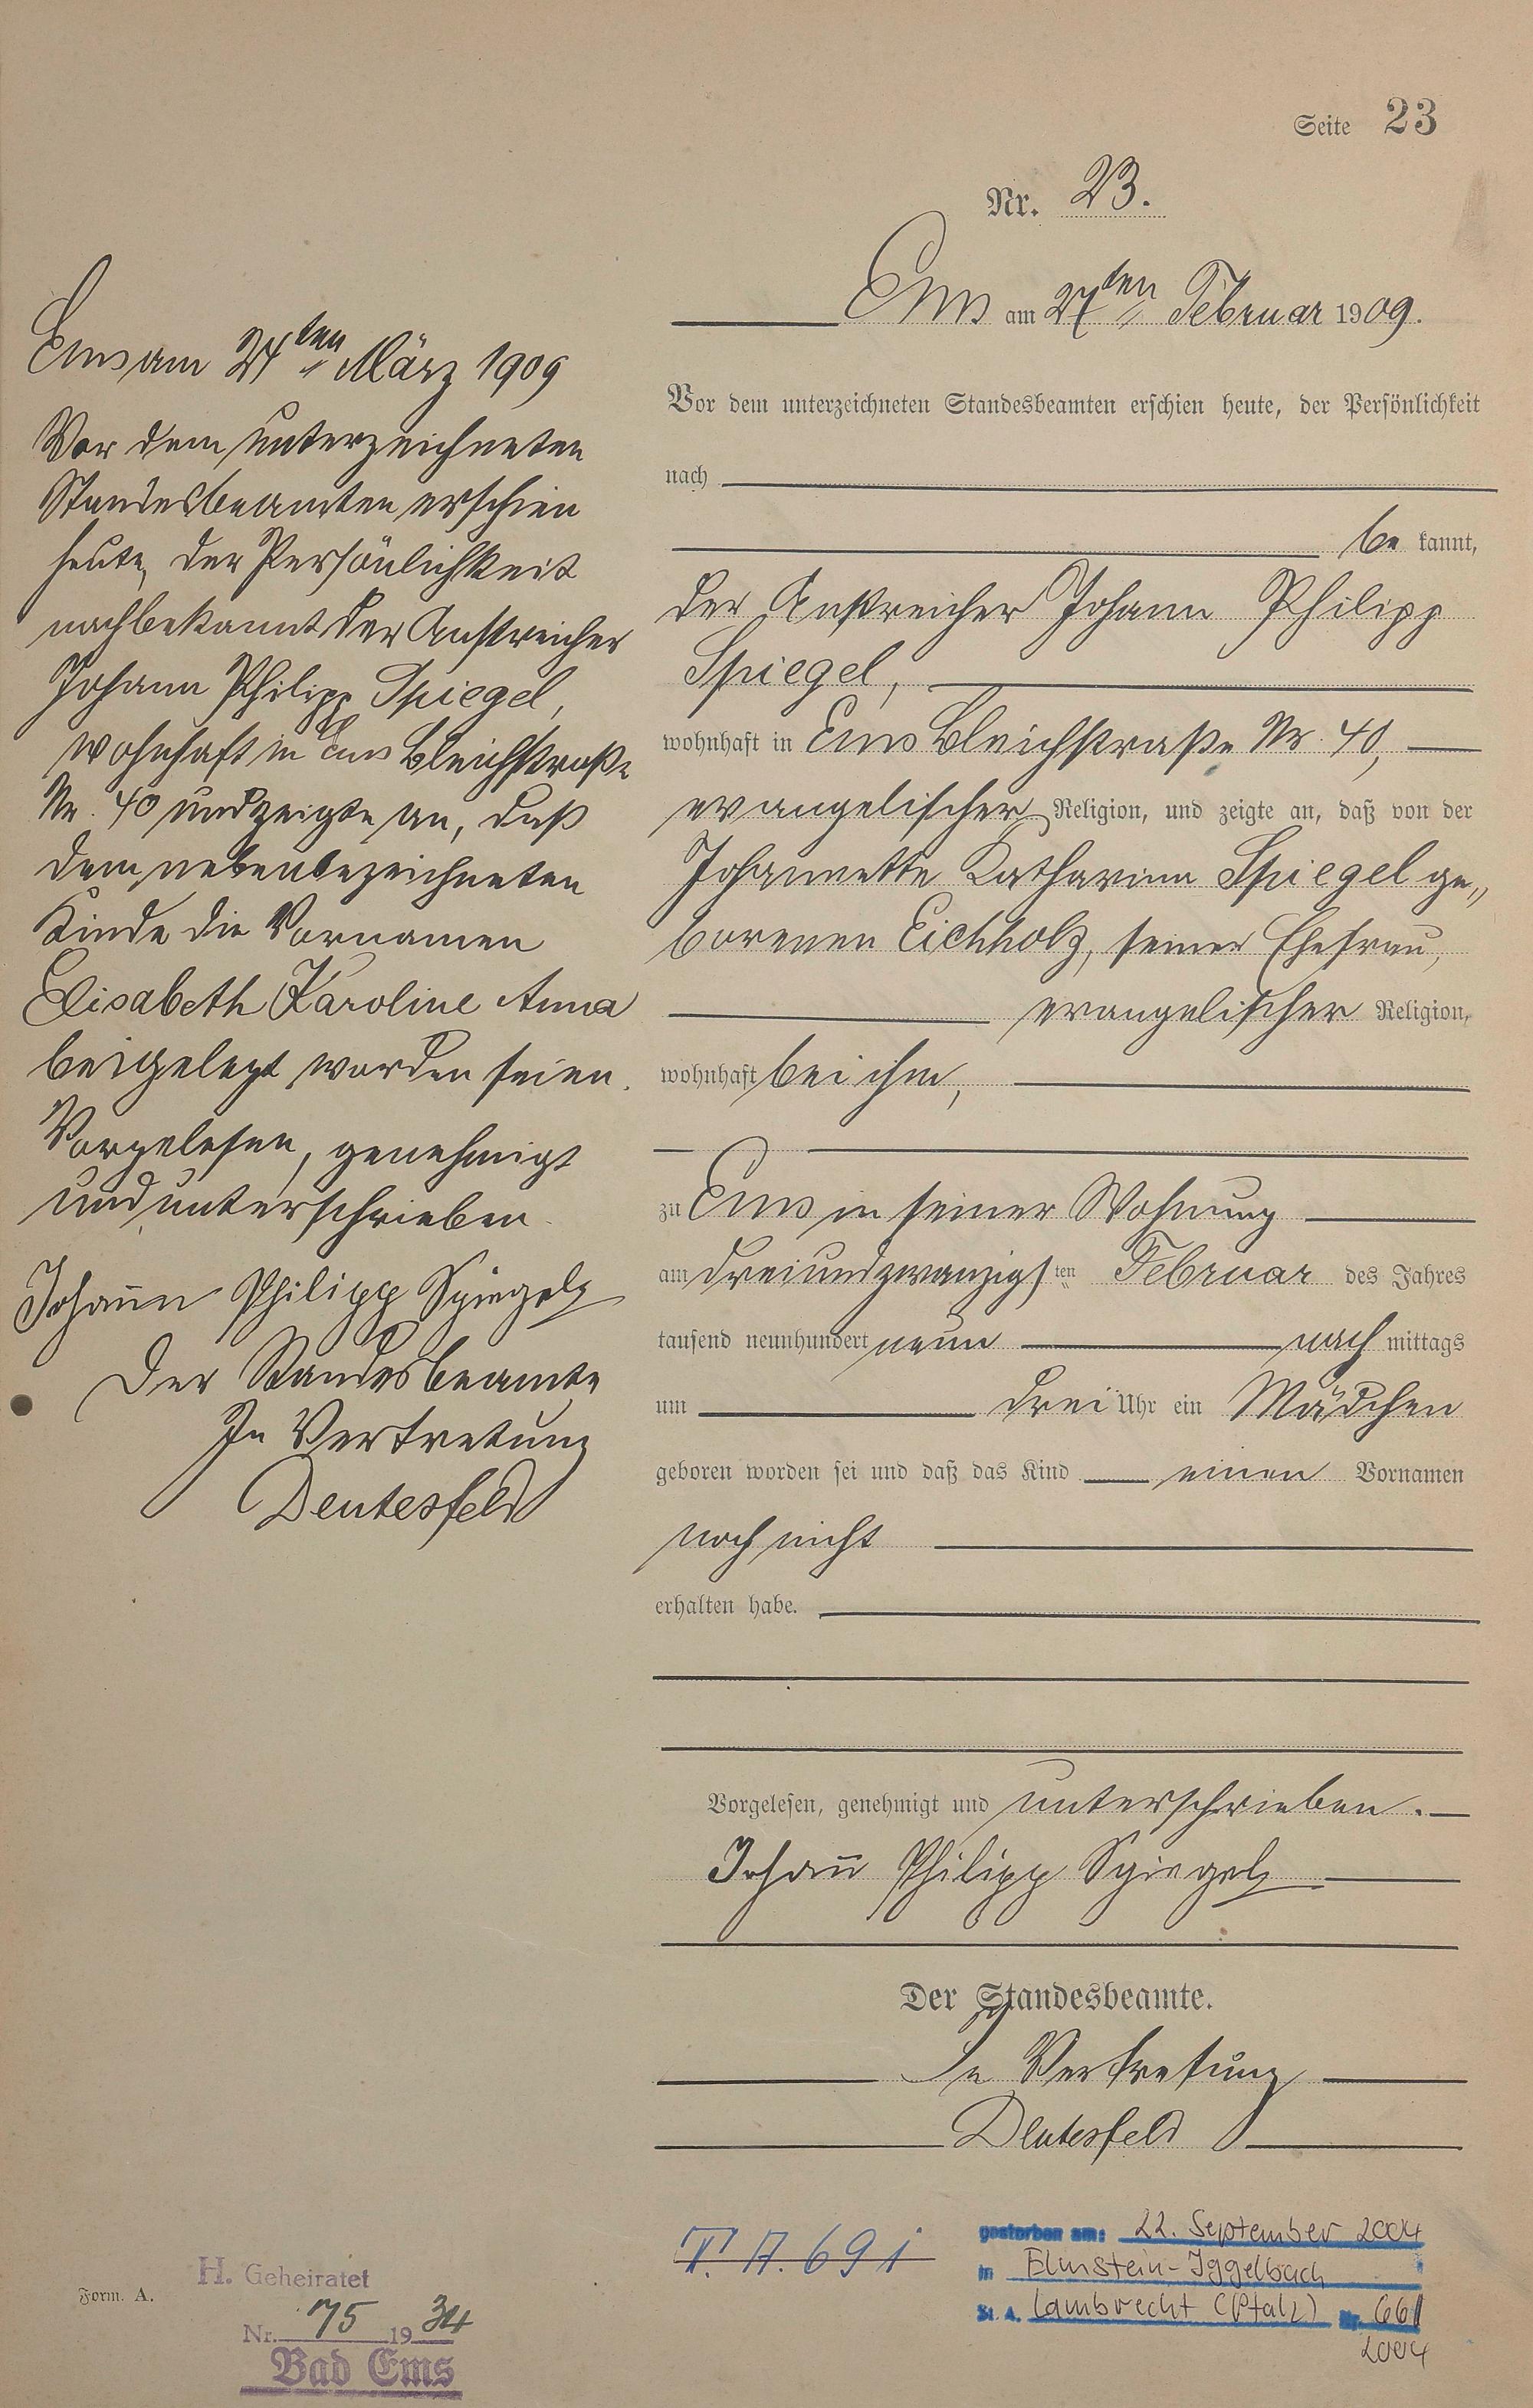 Seite 23
Nr. 23.
Ems am 27ten Februar 1909.
Vor dem unterzeichneten Standesbeamten erschien heute, der Persönlichkeit
nach
be kannt,
der Anstreicher Johann Philipp
Spiegel,
wohnhaft in Ems Bleichstraße Nr. 40,
evangelischer Religion, und zeigte an, daß von der
Johannette Katharina Spiegel ge„
borenen Eichholz, seiner Ehefrau,
evangelischer Religion,
wohnhaft bei ihm,
zu Ems in seiner Wohnung
am dreiundzwanzigsten Februar des Jahres
tausend neunhundert neun nach mittags
um drei Uhr ein Mädchen
geboren worden sei und daß das Kind einen Vornamen
noch nicht
erhalten habe.
Vorgelesen, genehmigt und unterschrieben.
Johann Philipp Spiegel
Der Standesbeamte.
In Vertretung
Deutesfeld
Ems am 24ten März 1909
Vor dem unterzeichneten
Standesbeamten erschien
heute, der Persönlichkeit
nach bekannt der Anstreicher
Johann Philipp Spiegel,
wohnhaft in Ems Bleichstraße
Nr. 40 und zeigte an, daß
dem nebenbezeichneten
Kinde die Vornamen
Elisabeth Karoline Anna
beigelegt worden seien.
Vorgelesen, genehmigt
und unterschrieben
Johann Philipp Spiegel
Der Standesbeamte
In Vertretung
Deutesfeld
T. A. 691
gestorben am: 22. September 2004
in Elmstein-Iggelbach
St. A. Lambrecht (Pfalz) Nr. 661
2004
Form. A.
H. Geheiratet
Nr. 75 1934
Bad Ems